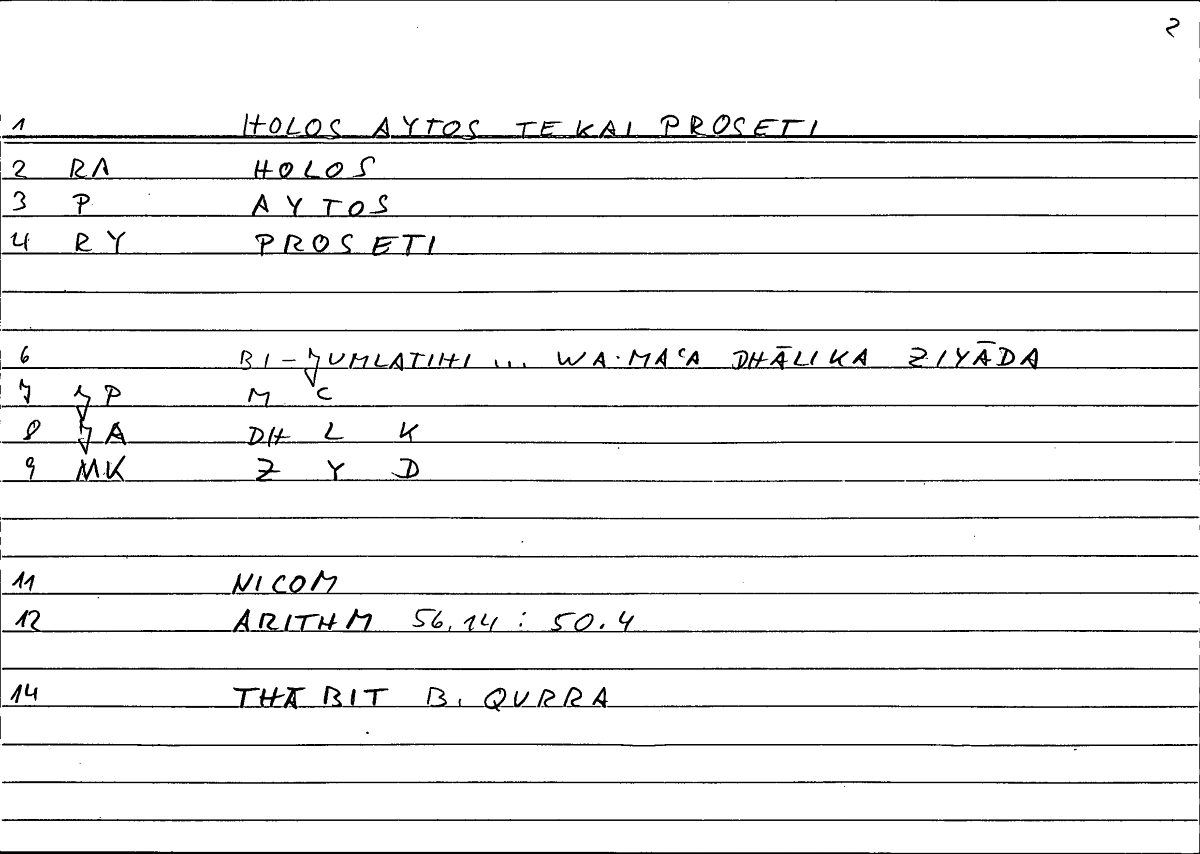 2
1 HOLOS AYTOS TE KAI PROSETI
2 RA HOLOS
3 P AYTOS
4 RY PROSETI
6 BI-JUMLATIHI ... WA-MAʿA DHĀLIKA ZIYĀDA
7 JP M ʿ
8 JA DH L K
9 MK Z Y D
11 NICOM
12 ARITHM 56.14 : 50.4
14 THĀBIT B. QURRA